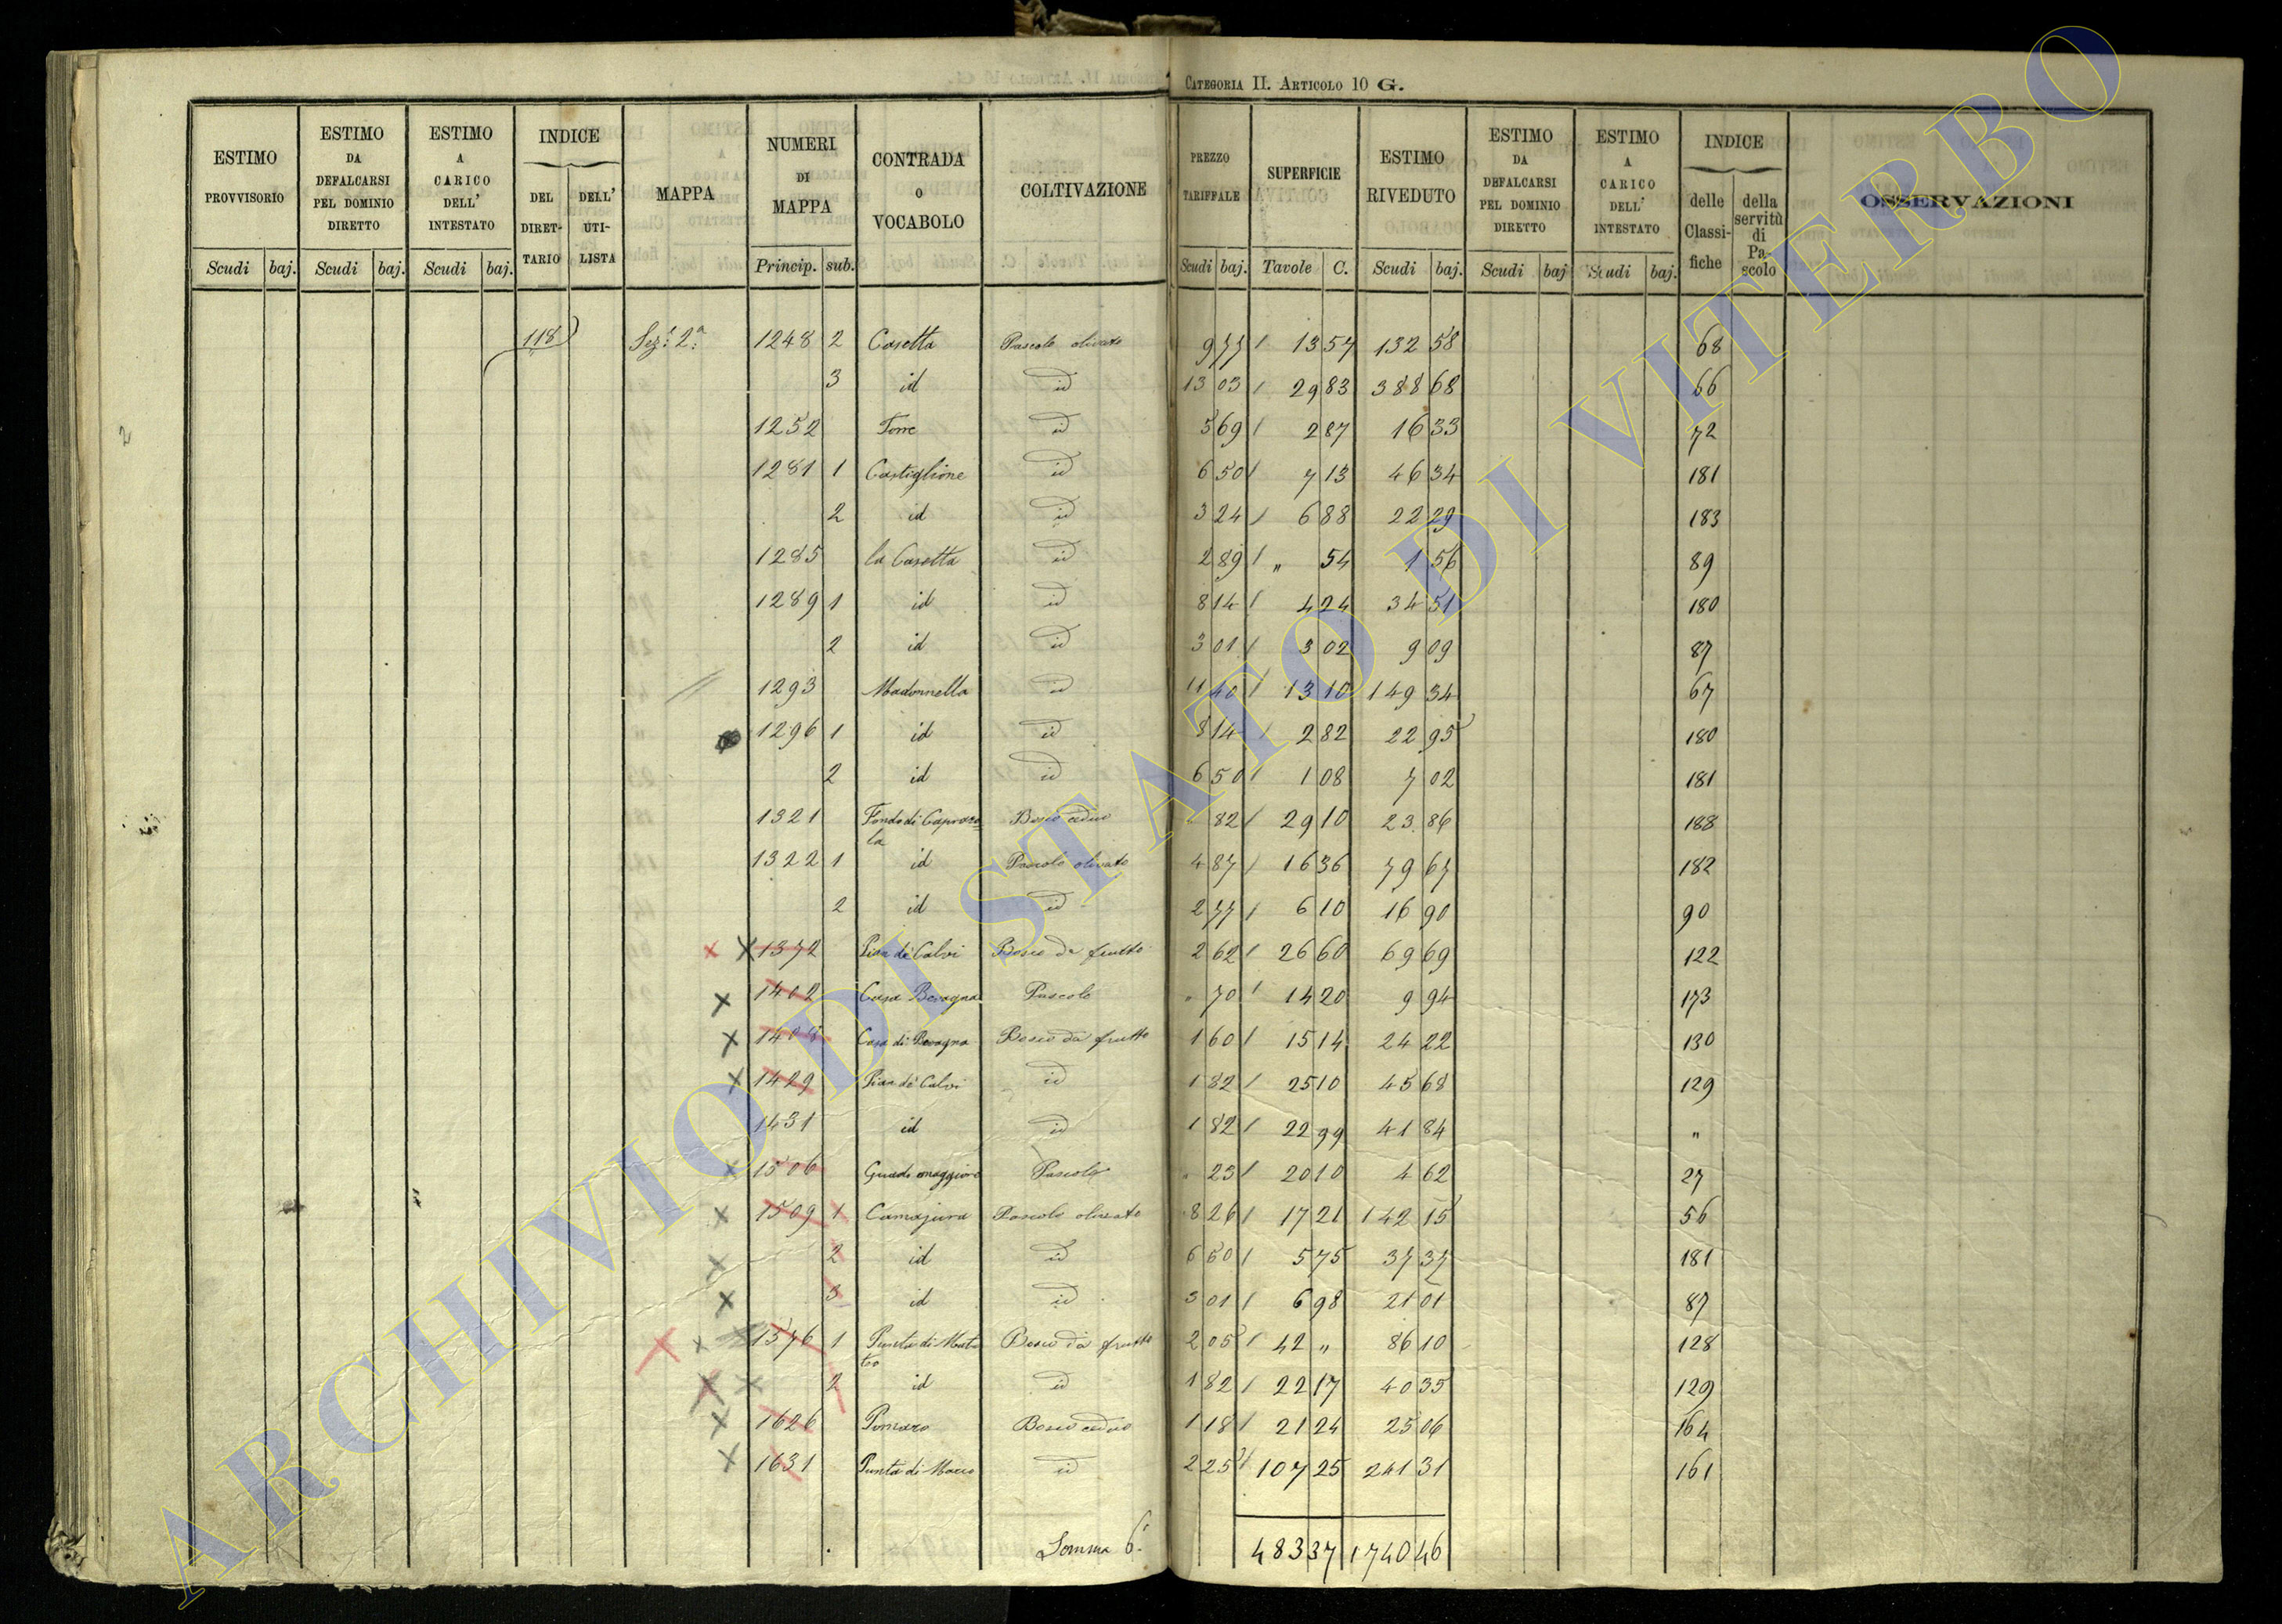 CATEGORIA II. ARTICOLO 10 G.
ESTIMO PROVVISORIO | ESTIMO DA DEFALCARSI PEL DOMINIO DIRETTO | ESTIMO A CARICO DELL' INTESTATO | INDICE DEL DIRETTARIO | DELL' UTILISTA | MAPPA | NUMERI DI MAPPA | CONTRADA O VOCABOLO | COLTIVAZIONE | PREZZO TARIFFALE | SUPERFICIE | ESTIMO RIVEDUTO | ESTIMO DA DEFALCARSI PEL DOMINIO DIRETTO | ESTIMO A CARICO DELL' INTESTATO | INDICE delle Classifiche | della servitù di Pascolo | OSSERVAZIONI
Scudi baj. Scudi baj. Scudi baj. Princip. sub. Scudi baj. Tavole C. Scudi baj. Scudi baj Scudi baj.
118 Sez. 2a 1248 2 Casetta Pascolo olivato 9 77 13 57 132 58 68
3 id id 13 03 29 83 388 68 66
1252 Torre id 5 69 2 87 16 33 72
1281 1 Castiglione id 6 50 7 13 46 34 181
2 id id 3 24 6 88 22 29 183
1285 la Casetta id 2 89 " 54 1 56 89
1289 1 id id 8 14 4 24 34 51 180
2 id id 3 01 3 02 9 09 87
1293 Madonnella id 11 40 13 10 149 34 67
1296 1 id id 8 14 2 82 22 95 180
2 id id 6 50 1 08 7 02 181
1321 Fondo di Caprarola Bosco ceduo 82 29 10 23 86 188
1322 1 id Pascolo olivato 4 87 16 36 79 67 182
2 id id 2 77 6 10 16 90 90
1372 Pian de Calvi Bosco da frutto 2 62 26 60 69 69 122
1402 Casa Bevagna Pascolo " 70 14 20 9 94 173
1408 Casa di Bevagna Bosco da frutto 1 60 15 14 24 22 130
1429 Pian de Calvi id 1 82 25 10 45 68 129
1431 id id 1 82 22 99 41 84 "
1506 Guado maggiore Pascolo " 23 20 10 4 62 27
1509 1 Camajura Pascolo olivato 8 26 17 21 142 15 56
2 id id 6 50 5 75 37 37 181
3 id id 3 01 6 98 21 01 87
1576 1 Punta di Matteo Bosco da frutto 2 05 42 " 86 10 128
2 id id 1 82 22 17 40 35 129
1626 Pomaro Bosco ceduo 1 18 21 24 25 06 164
1631 Punta di Macco id 2 25 107 25 241 31 161
Somma 6a 483 37 1740 46
ARCHIVIO DI STATO DI VITERBO